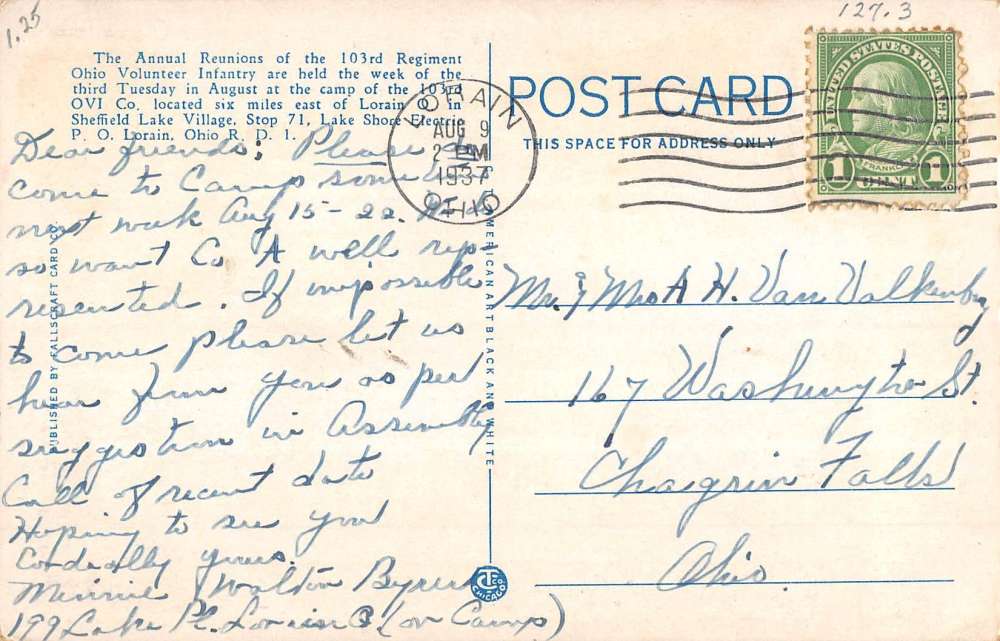 1.25
127.3
The Annual Reunions of the 103rd Regiment
Ohio Volunteer Infantry are held the week of the
third Tuesday in August at the camp of the 103rd
OVI Co. located six miles east of Lorain O. in
Sheffield Lake Village, Stop 71, Lake Shore Electric
P. O. Lorain, Ohio R. D. 1.
Dear friends: Please
come to Camp some
next week Aug 15-22. We
so want Co A well rep-
resented. If impossible
to come please let us
hear from you as per
suggestion in Assembly
Call of recent date
Hoping to see you
Cordially yours.
Minnie Walton Byrens
199 Lake Pl. Lorain O (or Camp)
PUBLISHED BY FALLSCRAFT CARD CO.
AMERICAN ART BLACK AND WHITE
CTCO
CHICAGO
POST CARD
THIS SPACE FOR ADDRESS ONLY
LORAIN
AUG 9
2 PM
1937
OHIO
UNITED STATES POSTAGE
FRANKLIN
1 CENT 1
Mr. & Mrs A. H. Van Valkenburg
167 Washington St.
Chagrin Falls
Ohio